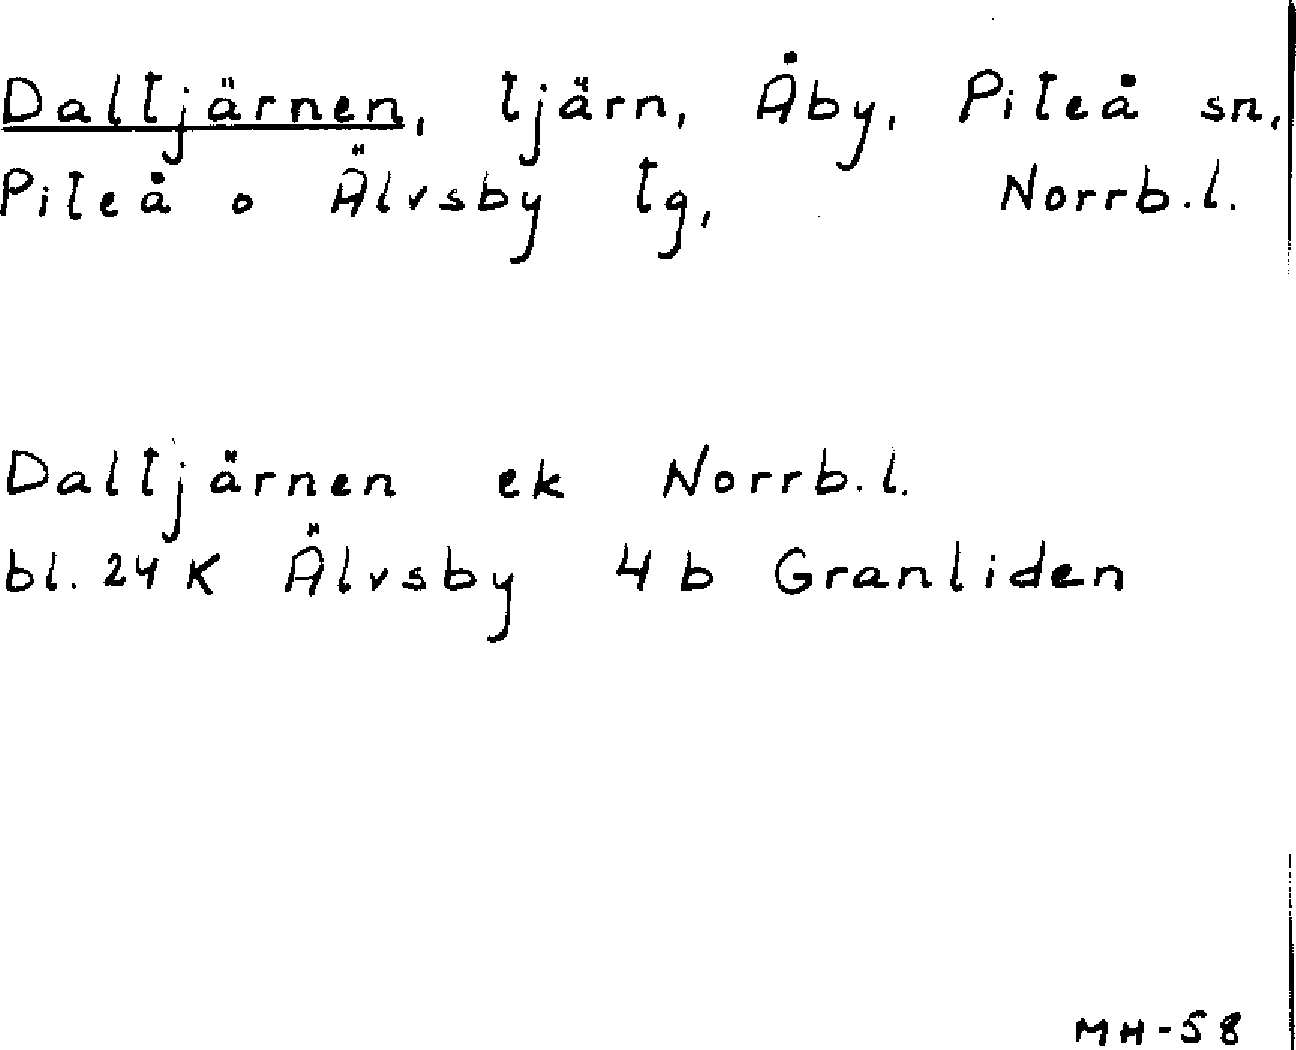 Daltjärnen, tjärn, Åby, Piteå sn,
Piteå o Älvsby tg, Norrb.l.
Daltjärnen ek Norrb.l.
bl. 24 K Älvsby 4 b Granliden
MH-58